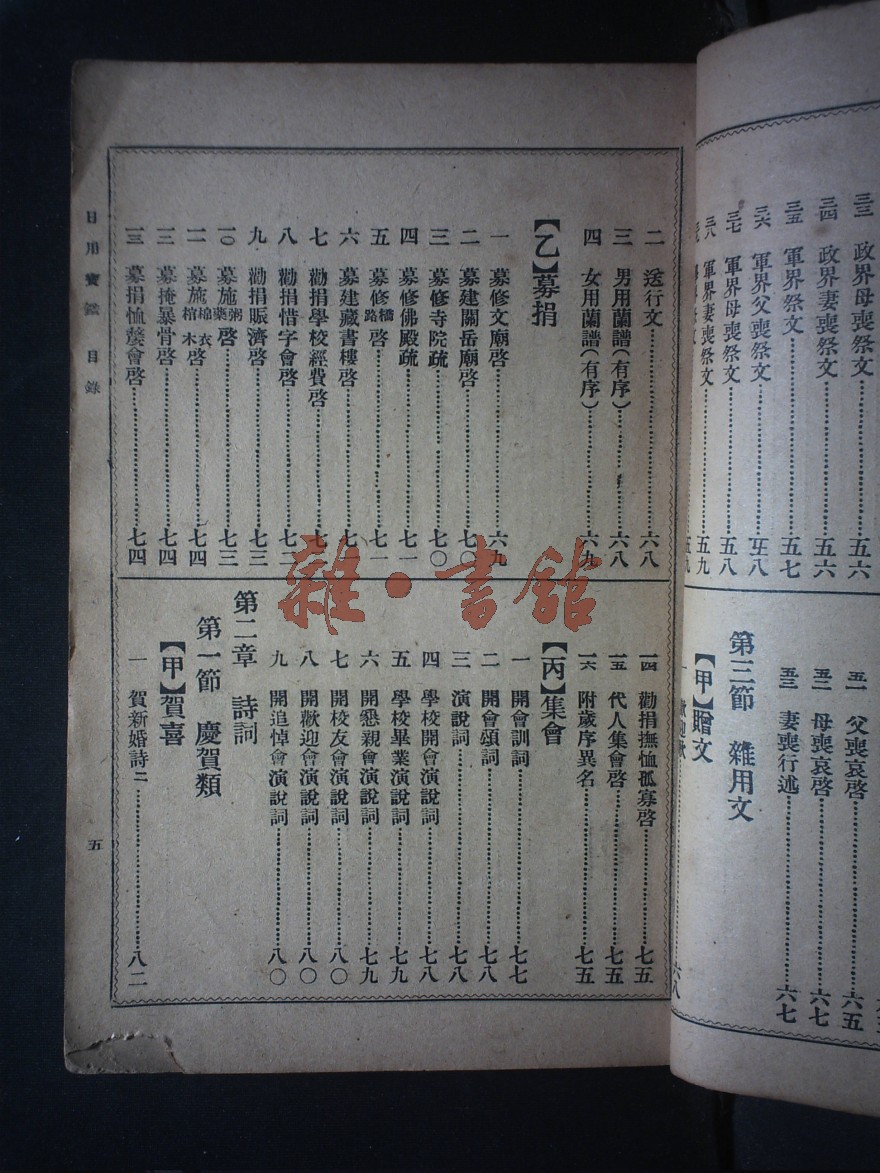 三三 政界母喪祭文……五六
三四 政界妻喪祭文……五六
三五 軍界祭文……五七
三六 軍界父喪祭文……五八
三七 軍界母喪祭文……五八
三八 軍界妻喪祭文……五九
五一 父喪哀啓……六五
五二 母喪哀啓……六七
五三 妻喪行述……六七
第三節 雜用文
【甲】贈文
一……六八
二 送行文……六八
三 男用蘭譜(有序)……六八
四 女用蘭譜(有序)……六九
【乙】募捐
一 募修文廟啓……六九
二 募建關岳廟啓……七〇
三 募修寺院疏……七〇
四 募修佛殿疏……七一
五 募修橋路啓……七一
六 募建藏書樓啓……七一
七 勸捐學校經費啓……七一
八 勸捐惜字會啓……七二
九 勸捐賑濟啓……七三
一〇 募施粥藥啓……七三
一一 募施棉衣棺木啓……七四
一二 募掩暴骨啓……七四
一三 募捐恤嫠會啓……七四
一四 勸捐撫恤孤寡啓……七五
一五 代人集會啓……七五
一六 附歲序異名……七五
【丙】集會
一 開會訓詞……七七
二 開會頌詞……七八
三 演說詞……七八
四 學校開會演說詞……七八
五 學校畢業演說詞……七九
六 開懇親會演說詞……七九
七 開校友會演說詞……八〇
八 開歡迎會演說詞……八〇
九 開追悼會演說詞……八〇
第二章 詩詞
第一節 慶賀類
【甲】賀喜
一 賀新婚詩二……八二
日用寶鑑 目錄
五
雜·書館